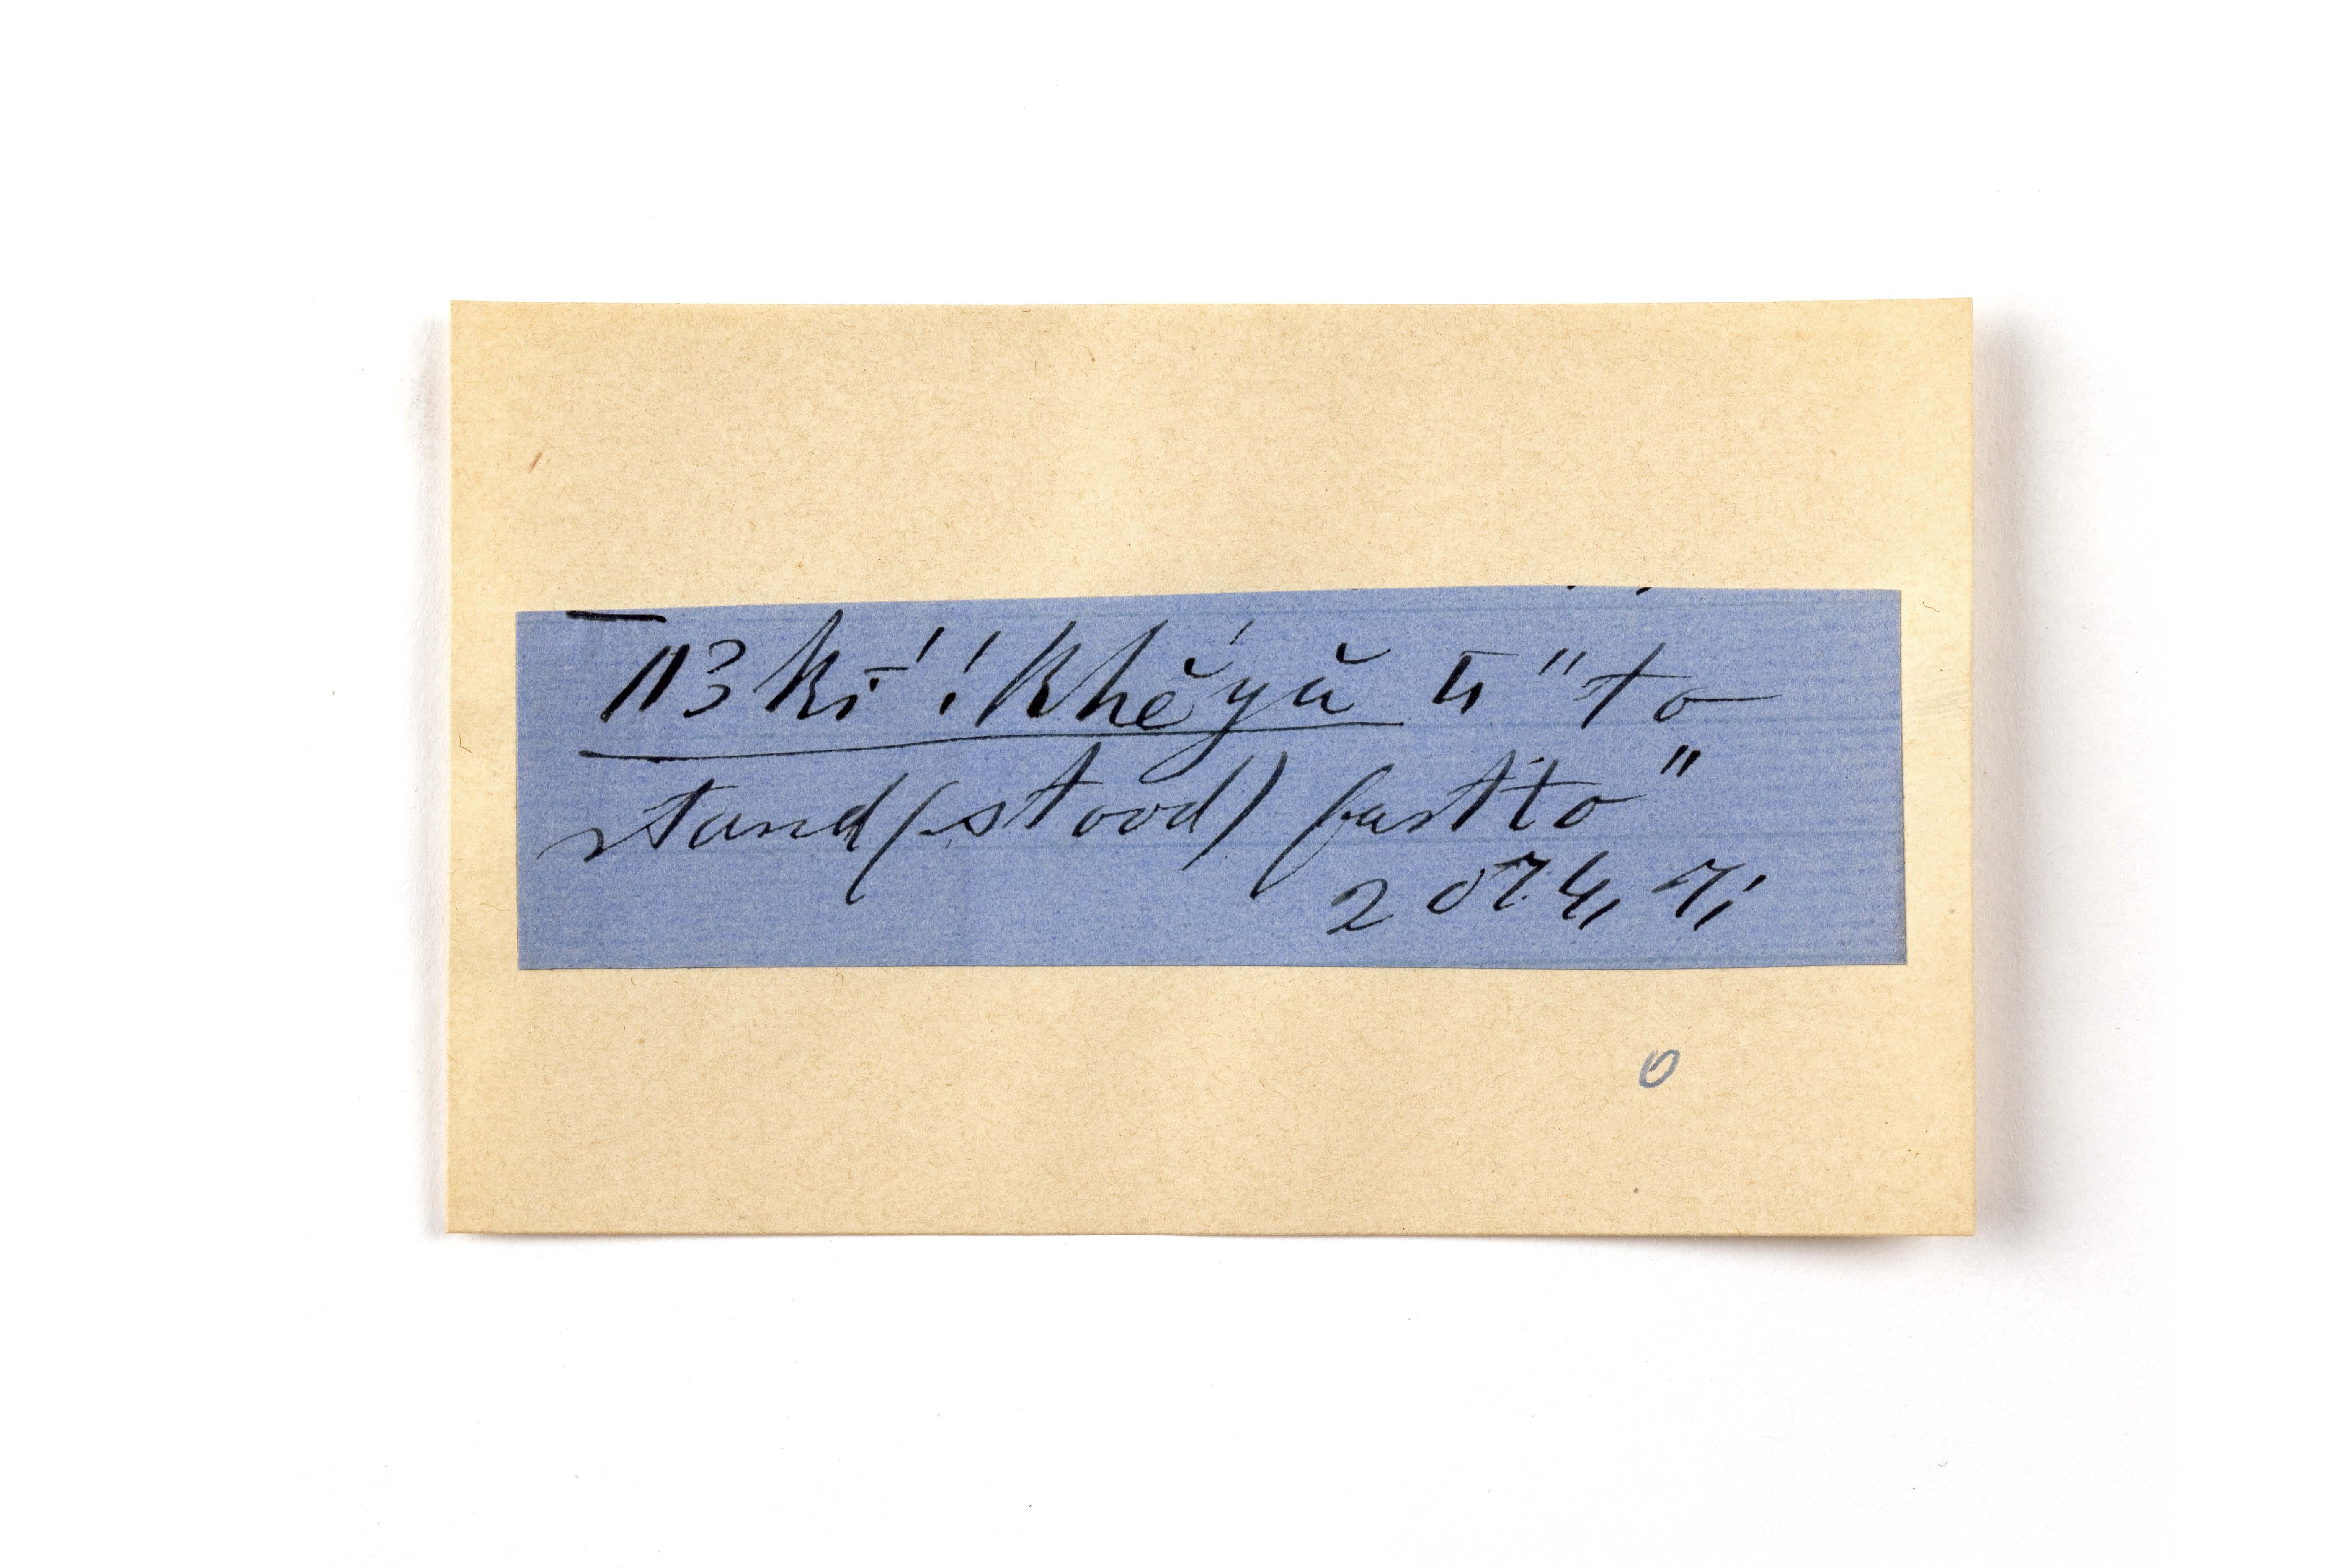 ǁ3 kī ́ǃkhĕ́yŭ ꜔ "to
stand (stood) fast to"
2074, 7,
0